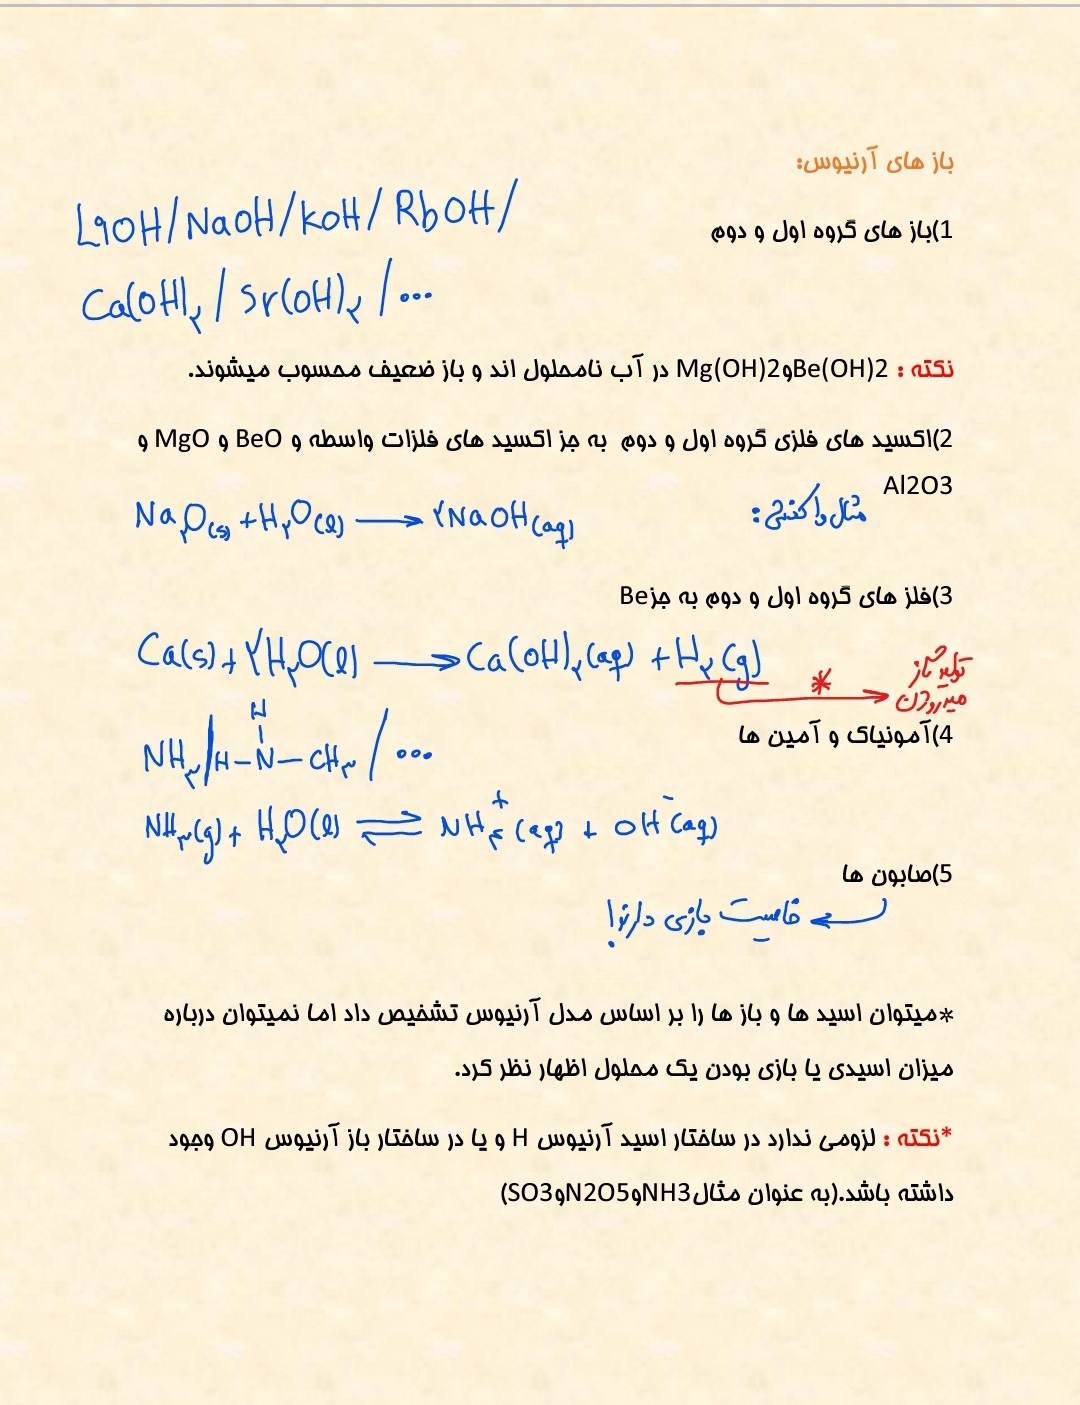 باز های آرنیوس:
1)باز های گروه اول و دوم
LiOH/NaOH/KOH/RbOH/
Ca(OH)۲/Sr(OH)۲/...
نکته : Be(OH)2وMg(OH)2 در آب نامحلول اند و باز ضعیف محسوب میشوند.
2)اکسید های فلزی گروه اول و دوم به جز اکسید های فلزات واسطه و BeO و MgO و
Al2O3
مثال واکنش:
Na۲O(s)+H۲O(l)→۲NaOH(aq)
3)فلز های گروه اول و دوم به جزBe
Ca(s)+۲H۲O(l)→Ca(OH)۲(aq)+H۲(g)
* تولید گاز
هیدروژن
4)آمونیاک و آمین ها
H
NH۳/H-N-CH۳/...
NH۳(g)+H۲O(l)⇌NH۴+(aq)+OH-(aq)
5)صابون ها
خاصیت بازی دارند!
*میتوان اسید ها و باز ها را بر اساس مدل آرنیوس تشخیص داد اما نمیتوان درباره
میزان اسیدی یا بازی بودن یک محلول اظهار نظر کرد.
*نکته : لزومی ندارد در ساختار اسید آرنیوس H و یا در ساختار باز آرنیوس OH وجود
داشته باشد.(به عنوان مثالNH3وN2O5وSO3)